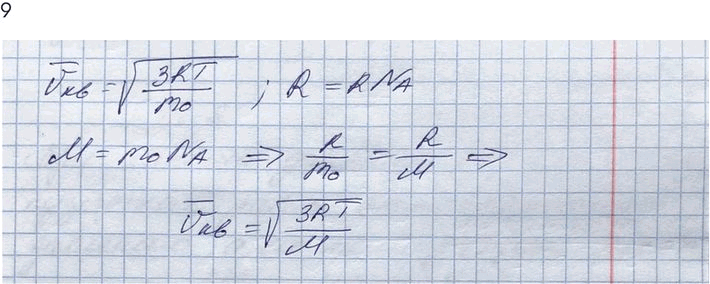 9
v̅кв = √(3kT/m₀) ; R = kNA
M = m₀NA => k/m₀ = R/M =>
v̅кв = √(3RT/M)